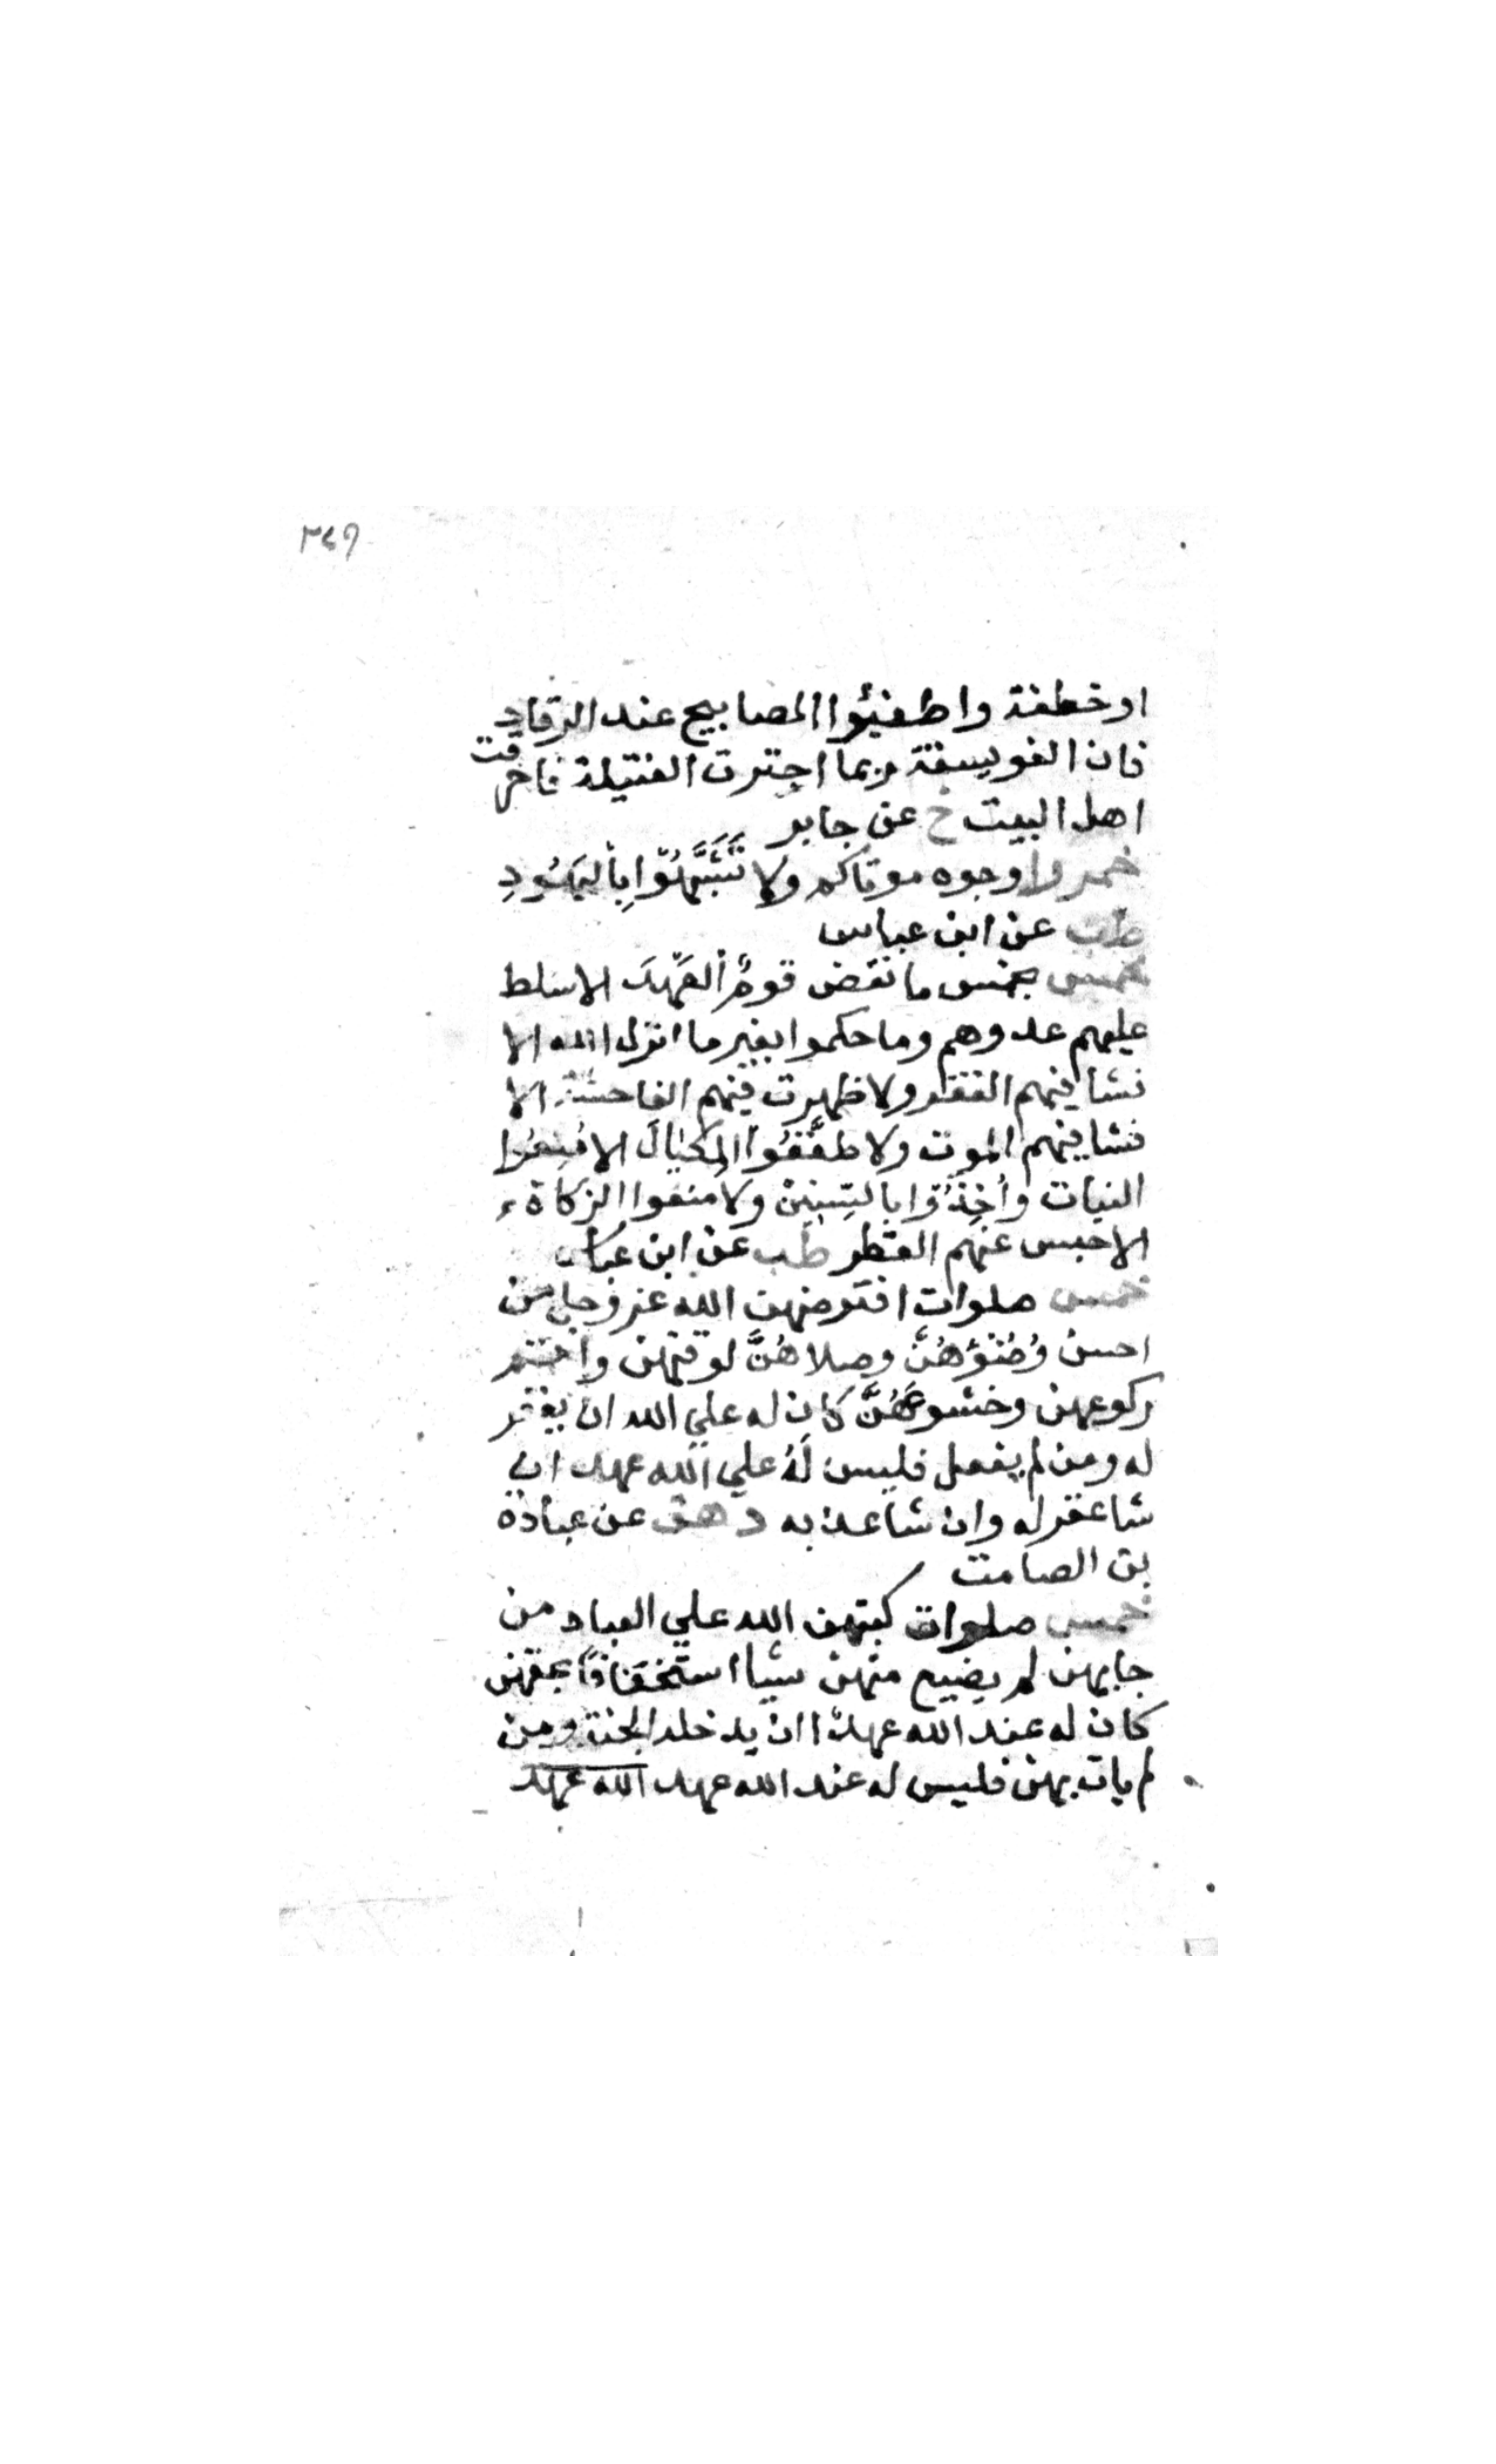 ٣٤٩
او خطفة واطفيؤا المصابيح عند الرقاد
فان الفويسقة ربما اجترت الفتيلة فاحرقت
اهل البيت خ عن جابر
خمروا وجوه موتاكم ولا تَشَبَّهُوْا بِاليَهُودِ
طب عن ابن عباس
خمس بخمس ما نقض قومٌ العَهْدَ الا سلط
عليهم عدوهم وما حكموا بغير ما انزل الله الا
فشا فيهم الفقر ولا ظهرت فيهم الفاحشة الا
فشا فيهم الموت ولا طفَّفُوا المِكْيَالَ الا مُنِعُوا
النبات وأُخِذُوْا بِالسِّنِيْنَ ولا منعوا الزكاة
الا حبس عنهم القطر طب عن ابن عباس
خمس صلوات افترضهن الله عز وجل من
احسن وُضُوْءَهُنَّ وصلاهُنَّ لوقتهن واتم
ركوعهن وخشوعَهُنَّ كان له علي الله ان يغفر
له ومن لم يفعل فليس لَهُ علي الله عهد ان
شا غفر له وان شا عذبه د هق عن عبادة
بن الصامت
خمس صلوات كبتهن الله علي العباد من
جا بهن لم يضيع منهن شيا استخفافًا بحقهن
كان له عند الله عهدًا ان يدخله الجنة ومن
لم يات بهن فليس له عند الله عهد الله عهد